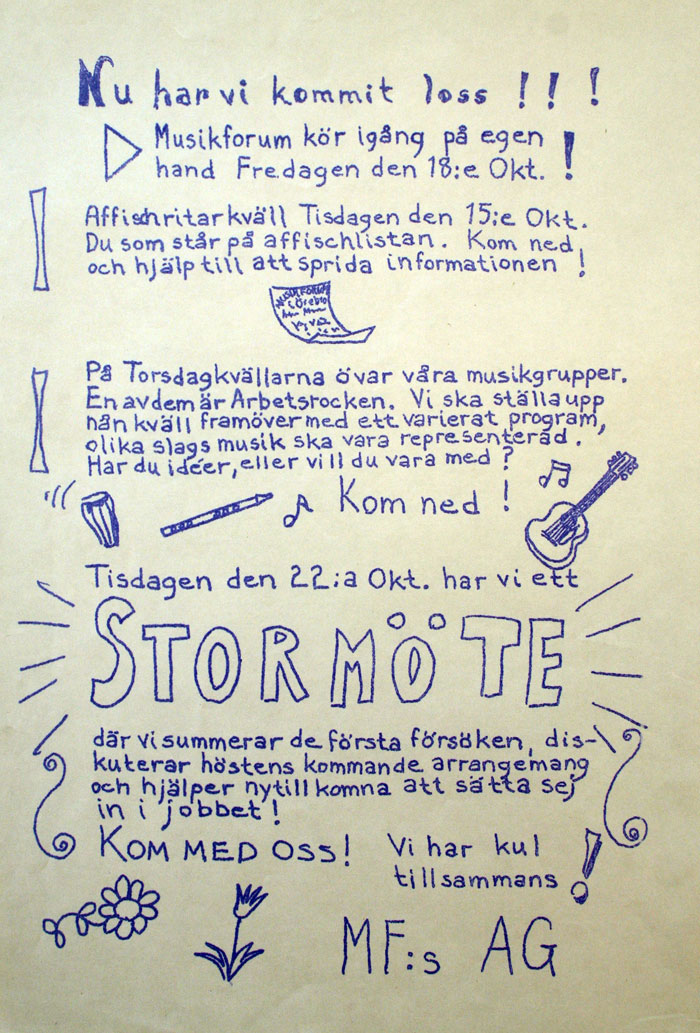 Nu har vi kommit loss !!!
Musikforum kör igång på egen
hand Fredagen den 18:e Okt. !
Affischritarkväll Tisdagen den 15:e Okt.
Du som står på affischlistan. Kom ned
och hjälp till att sprida informationen !
MUSIKFORUM
i Örebro
På Torsdagkvällarna övar våra musikgrupper.
En av dem är Arbetsrocken. Vi ska ställa upp
nån kväll framöver med ett varierat program,
olika slags musik ska vara representerad.
Har du idéer, eller vill du vara med ?
Kom ned !
Tisdagen den 22:a Okt. har vi ett
STORMÖTE
där vi summerar de första försöken, dis-
kuterar höstens kommande arrangemang
och hjälper nytillkomna att sätta sej
in i jobbet !
KOM MED OSS! Vi har kul
tillsammans !
MF:s AG